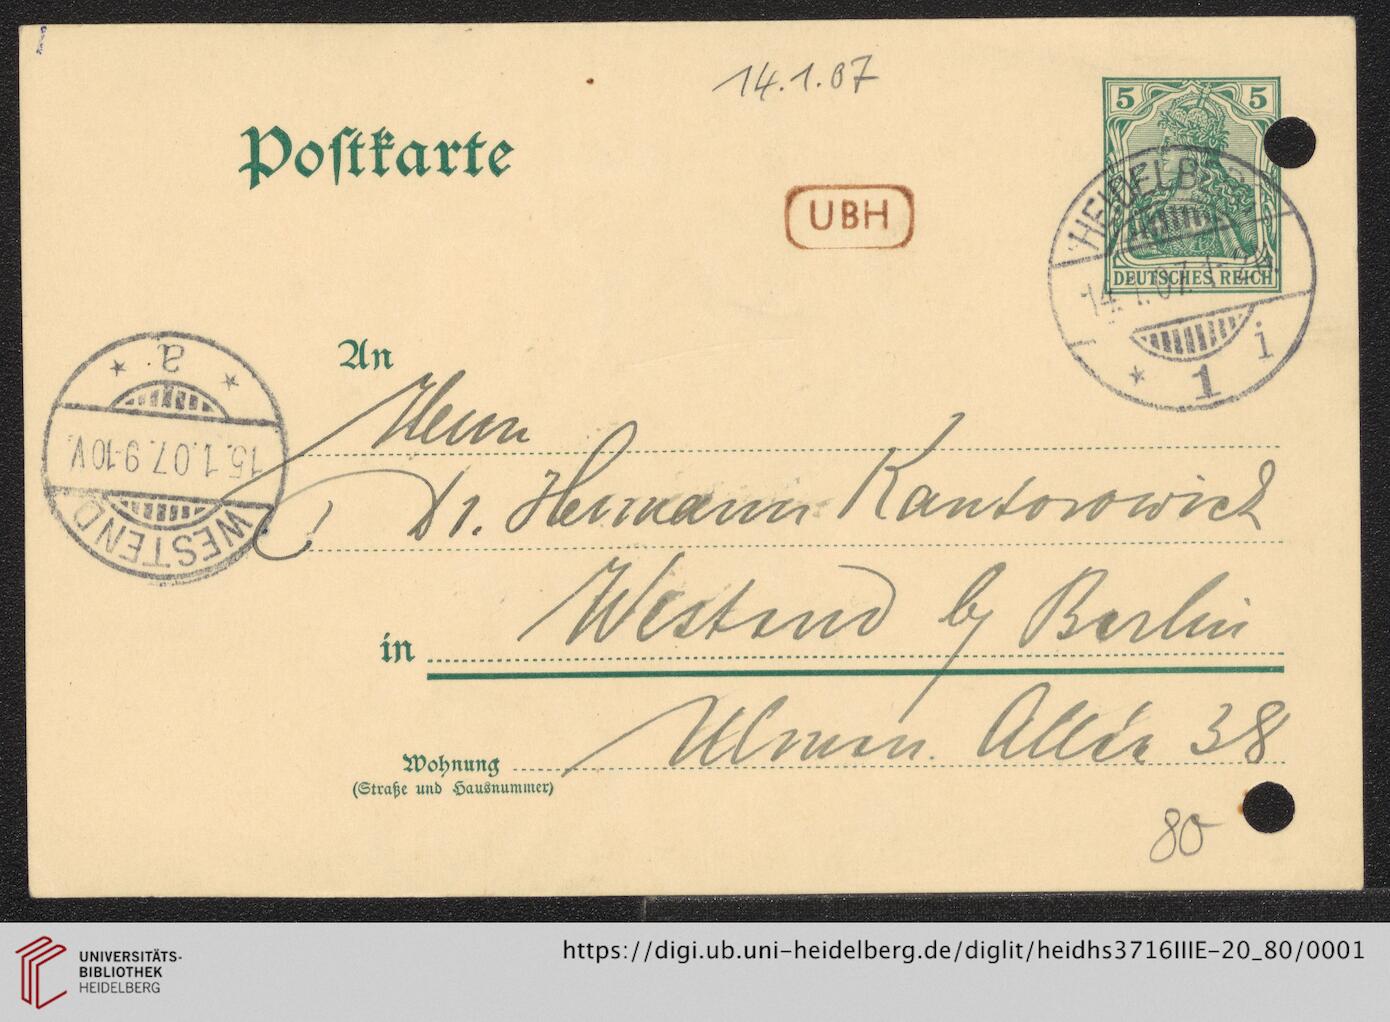 14.1.07
5 5
Postkarte
UBH
HEIDELBERG
DEUTSCHES REICH
14.1.07.1-2N.
* 1 i
An
* a *
15.1.07.9-10V.
WESTEND
Herrn
Dr. Hermann Kantorowicz
in Westend b/ Berlin
Wohnung Ulmen Allée 38
(Straße und Hausnummer)
80
UNIVERSITÄTS-
BIBLIOTHEK
HEIDELBERG
https://digi.ub.uni-heidelberg.de/diglit/heidhs3716IIIE-20_80/0001